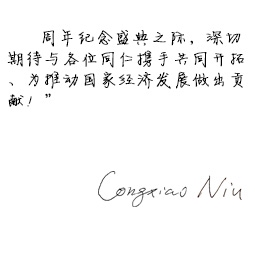 周年纪念盛典之际，深切
期待与各位同仁携手共同开拓
、为推动国家经济发展做出贡
献！”
Congxiao Niu